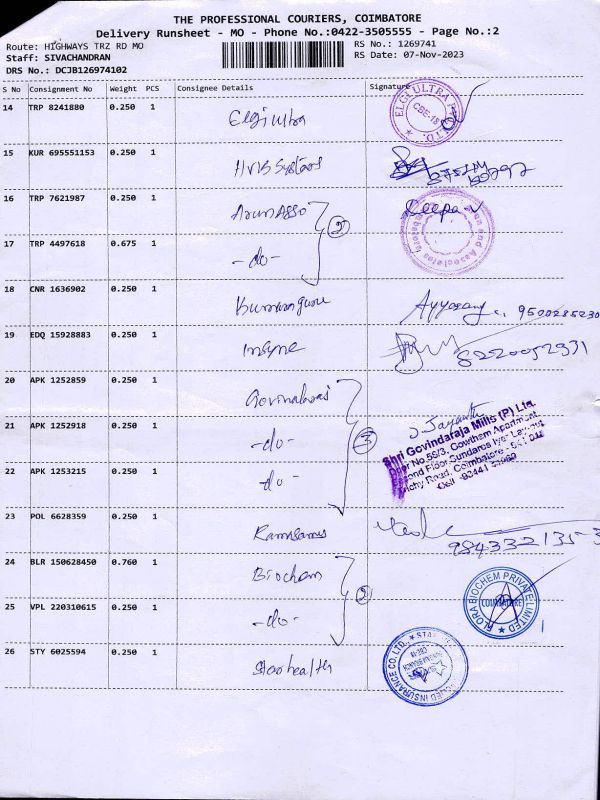 THE PROFESSIONAL COURIERS, COIMBATORE
Delivery Runsheet - MO - Phone No.:0422-3505555 - Page No.:2
Route: HIGHWAYS TRZ RD MO
RS No.: 1269741
Staff: SIVACHANDRAN
RS Date: 07-Nov-2023
DRS No.: DCJB126974102
S No Consignment No Weight PCS Consignee Details Signature
14 TRP 8241880 0.250 1 Elgi ultra
ELGI ULTRA LTD. CBE-18
15 KUR 695551153 0.250 1 HVB Systems
16 TRP 7621987 0.250 1 Arun Asso Deepa.V
2
17 TRP 4497618 0.675 1 -do-
and Associates
18 CNR 1636902 0.250 1 Kumaraguru
9500285230
19 EDQ 15928883 0.250 1 Insyne 8220052931
20 APK 1252859 0.250 1 Govindaraj
21 APK 1252918 0.250 1 -do- Jayanthi
3
Shri Govindaraja Mills (P) Ltd.
Door No.59/3, Gowtham Apartment
Second Floor, Sundaras Iyer Layout
Trichy Road, Coimbatore - 641 018
22 APK 1253215 0.250 1 -do-
23 POL 6628359 0.250 1
24 BLR 150628450 0.760 1 Biochem
2
FLORA BIOCHEM PRIVATE LIMITED COIMBATORE
25 VPL 220310615 0.250 1 -do-
26 STY 6025594 0.250 1 Star health
INSURANCE CO. LTD. STAR